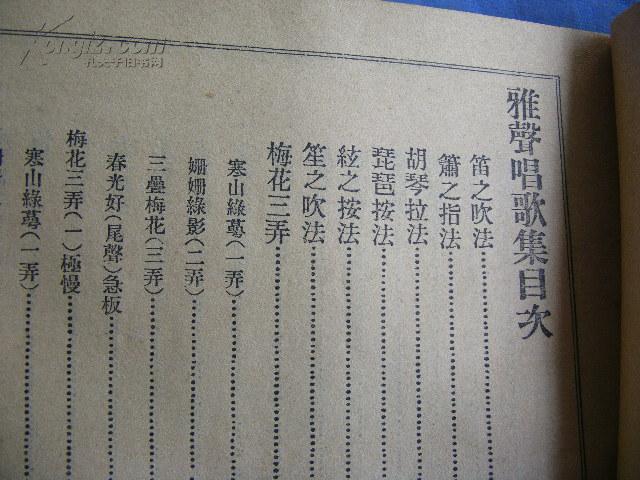 雅聲唱歌集目次
笛之吹法
簫之指法
胡琴拉法
琵琶按法
絃之按法
笙之吹法
梅花三弄
寒山綠萼(一弄)
姍姍綠影(二弄)
三疊梅花(三弄)
春光好(尾聲)急板
梅花三弄(一)極慢
寒山綠萼(一弄)
Kongfz.com
孔夫子旧书网